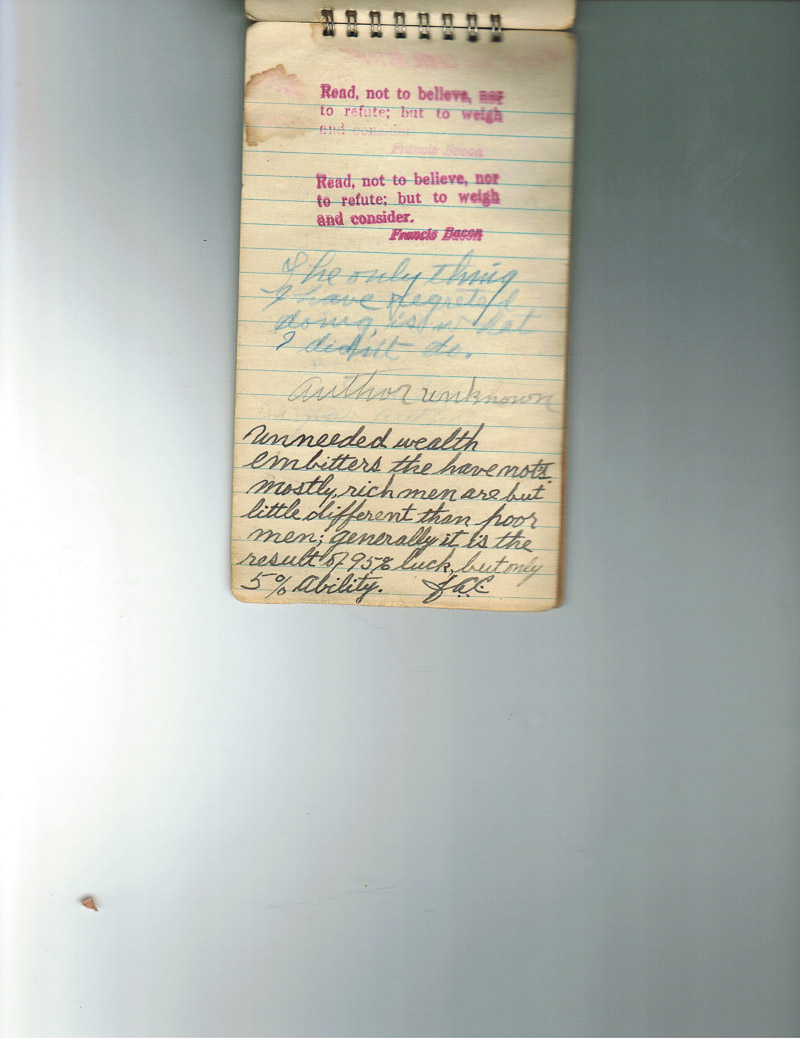 Read, not to believe, nor
to refute; but to weigh
and consider.
Francis Bacon
Read, not to believe, nor
to refute; but to weigh
and consider.
Francis Bacon
The only thing
I have regreted
doing, is what
I didn't do.
author unknown
Unneeded wealth
embitters the have nots.
Mostly, rich men are but
little different than poor
men; generally it is the
result of 95% luck, but only
5% Ability. JAC